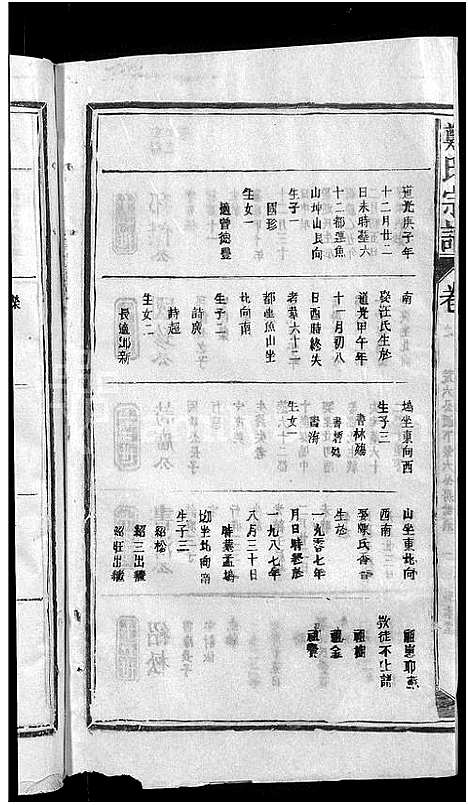 鄭氏宗譜
卷
道光庚子年
十二月廿二
日未時塟六
十二都墨魚
山坤山艮向
生子一
國珍
生女一
適曾德豐
南
娶汪氏生於
道光甲午年
十一月初八
日酉時終失
考塟六十二
都墨魚山坐
北向南
生子二
詩廣
詩超
生女二
長適北新
塢坐東向西
生子三
書林殤
書柄殤
書洧
生女一
山坐東北向
西南
娶陳氏香香
生於
一九零七年
月日時終於
一九八七年
八月三十日
時塟孟塢
坳坐北向南
生子三
紹松
紹三出繼
紹旺出繼
祖惠耶穌
敎徒不上譜
祖樹
祖金
祖賢